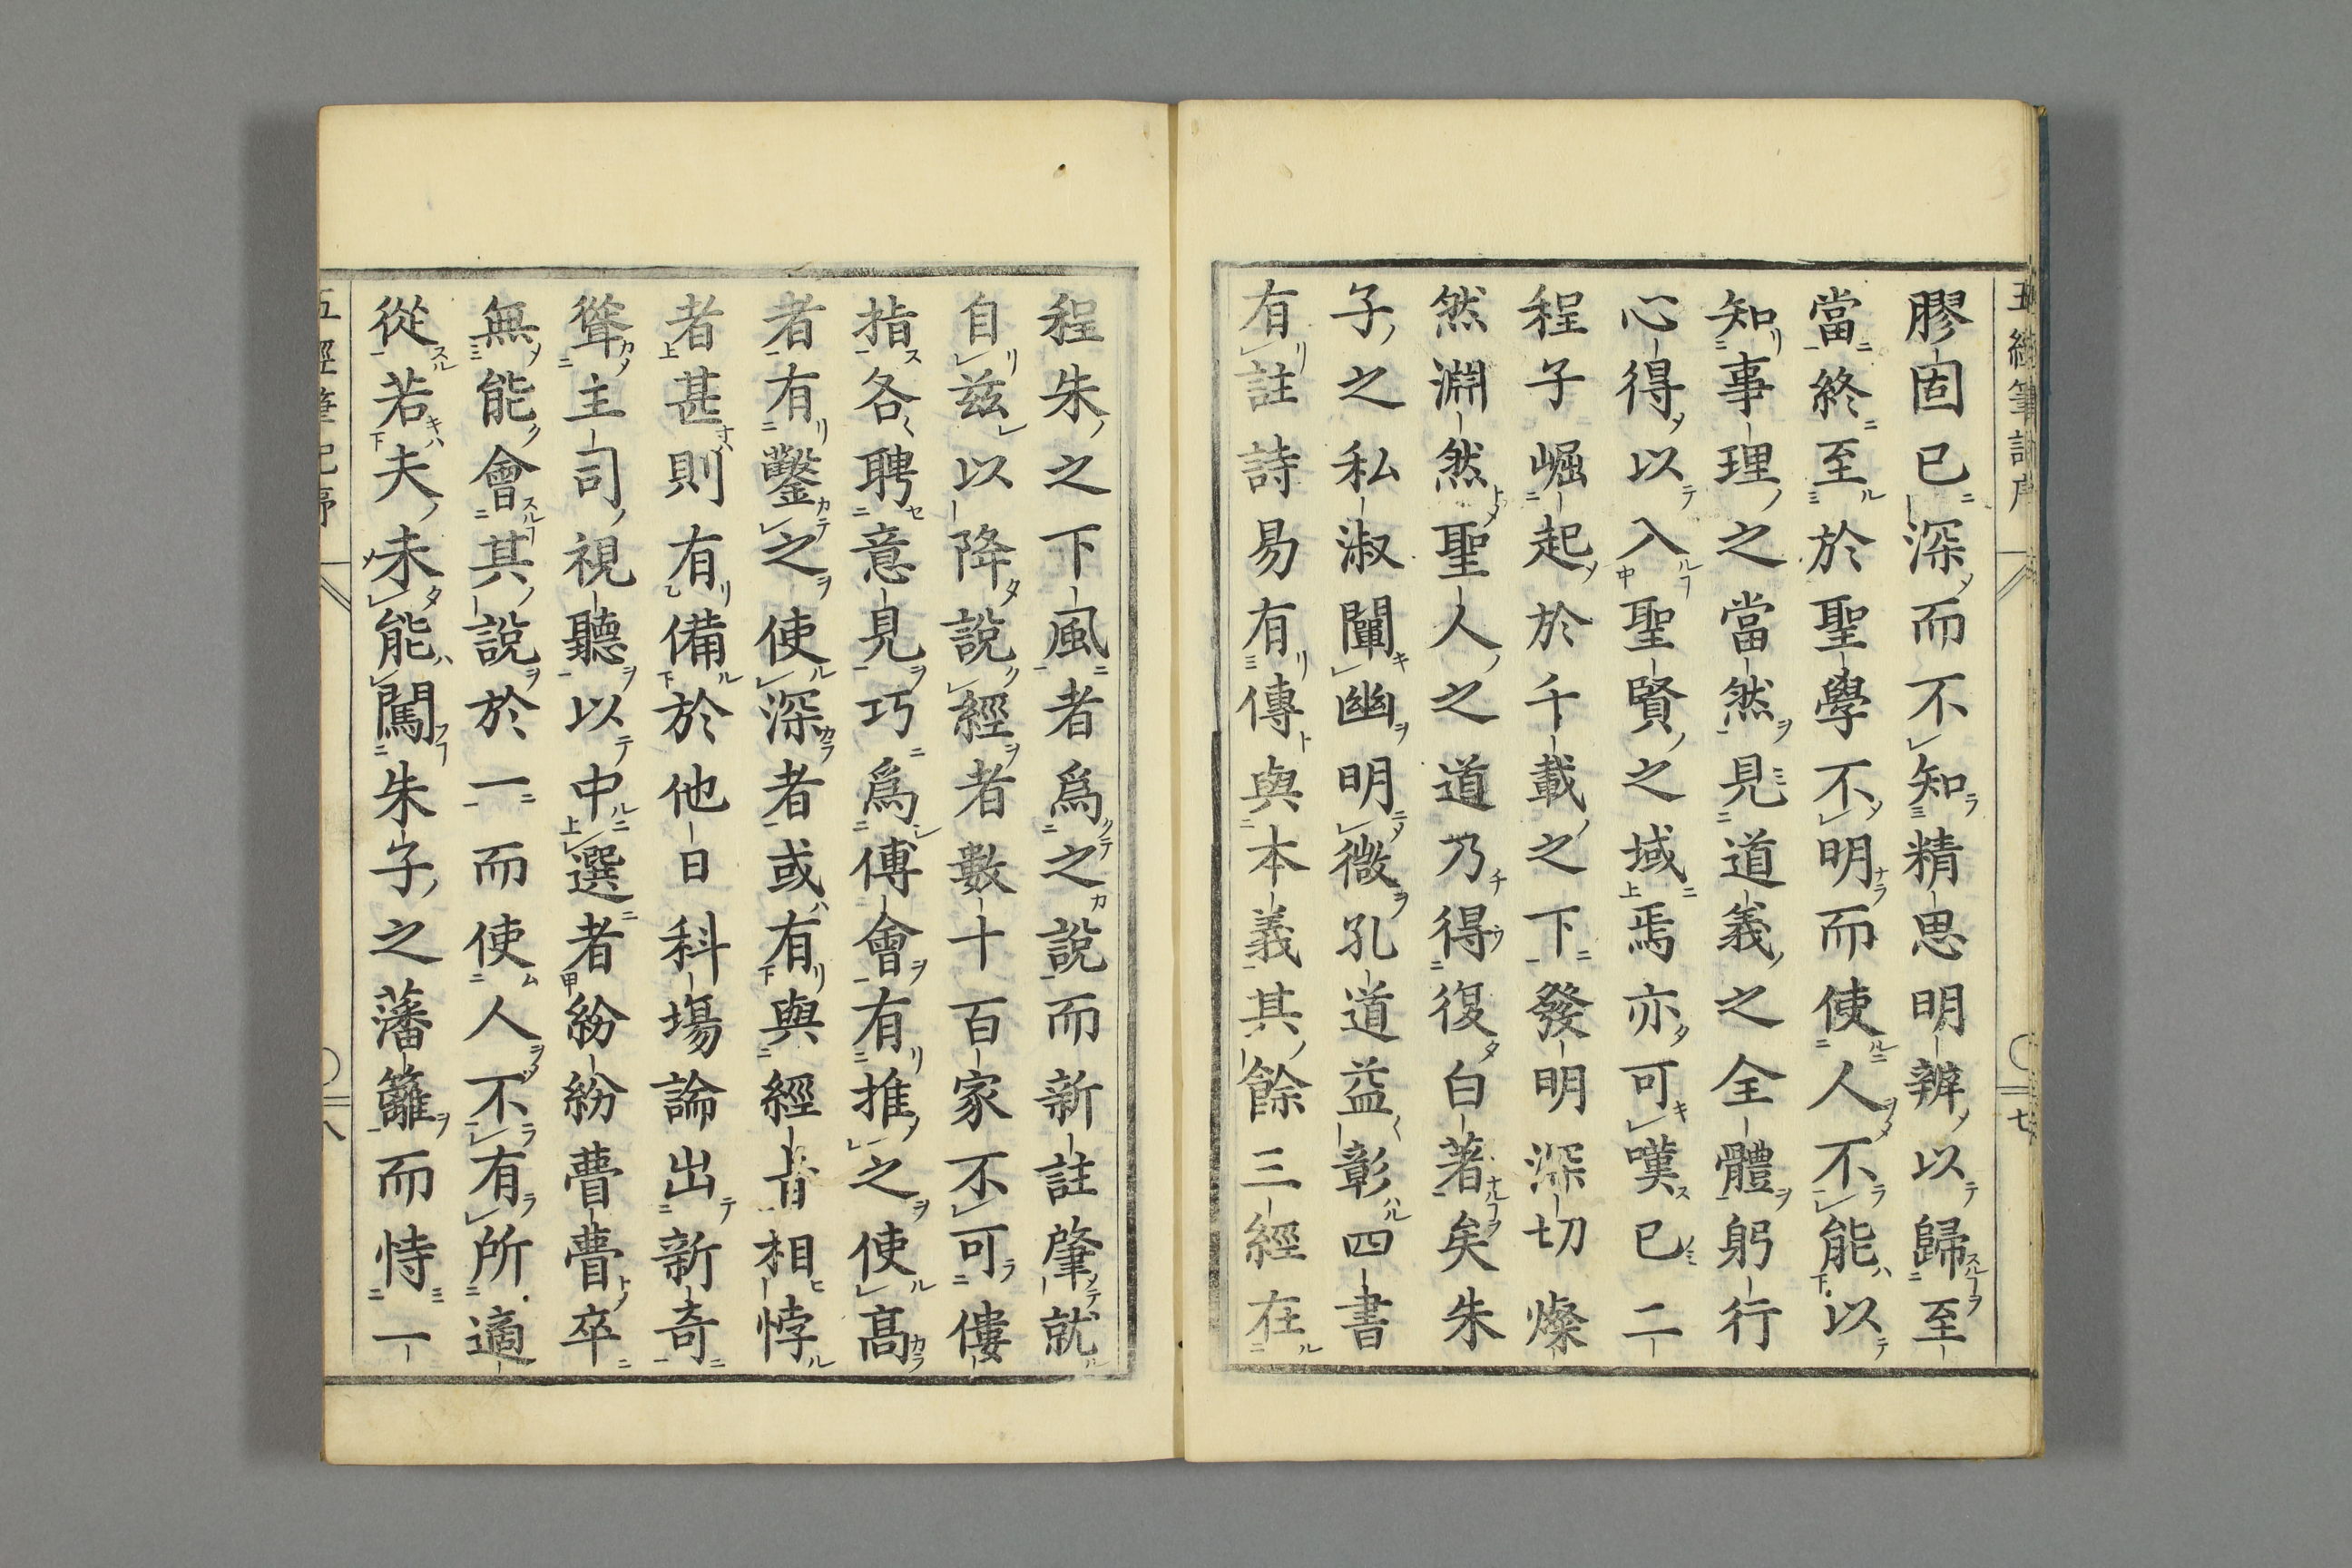 膠固已深而不知精思明辨以歸至
當終至於聖學不明而使人不能以
知事理之當然見道義之全體躬行
心得以入聖賢之域焉亦可嘆已二
程子崛起於千載之下發明深切燦
然淵然聖人之道乃得復白著矣朱
子之私淑闡幽明微孔道益彰四書
有註詩易有傳與本義其餘三經在
程朱之下風者爲之說而新註肇就
自茲以降說經者數十百家不可僂
指各聘意見巧爲傅會有推之使高
者有鑿之使深者或有與經旨相悖
者甚則有備於他日科場論出新奇
聳主司視聽以中選者紛紛瞢瞢卒
無能會其說於一而使人不有所適
從若夫未能闖朱子之藩籬而恃一